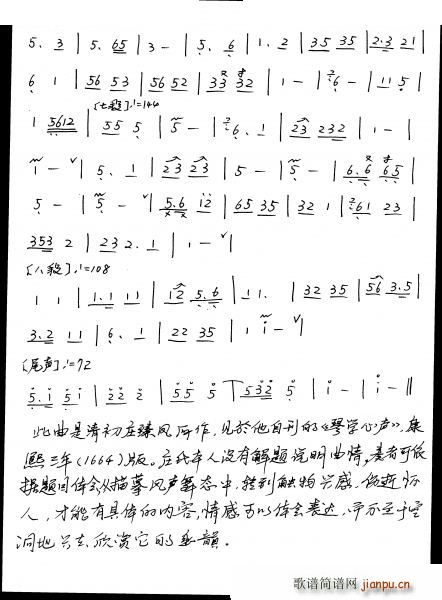 5. 3 | 5. 65 | 3 - | 5. 6 | 1. 2 | 35 35 | 2.3 21 |
6 1 | 56 53 | 56 52 | 33 32 | 1 - | 6 - | 11 5 |
[七段]♩=144
1 5612 | 55 5 | 5 - | 6. 1 | 23 232 | 1 - |
1 - ∨ | 5. 1 | 23 23 | 5 - | 5 - | 6.6 65 |
5 - | 5 - ∨ | 5.6 12 | 65 35 | 32 1 | 61 23 |
353 2 | 23 2.1 | 1 - ∨ |
[八段]♩=108
1 1 | 1.1 11 | 12 5.6 | 11. | 32 35 | 56 3.5 |
3.2 11 | 6. 1 | 22 35 | 1 i - ∨ |
[尾声]♩=72
5.1 51 | 22 2 | 55 5 | 532 5 | i - | i - ‖
此曲是清初庄臻凤所作,见於他自刊的《琴学心声》,康
熙三年(1664)版。庄氏本人没有解题说明曲情,奏者可依
据题目体会从描摹风声舞态中,转到触物兴感
人,才能有具体的内容,情感可以体会表达,而不至于空
洞地只去欣赏它的音韻。
歌谱简谱网
jianpu.cn